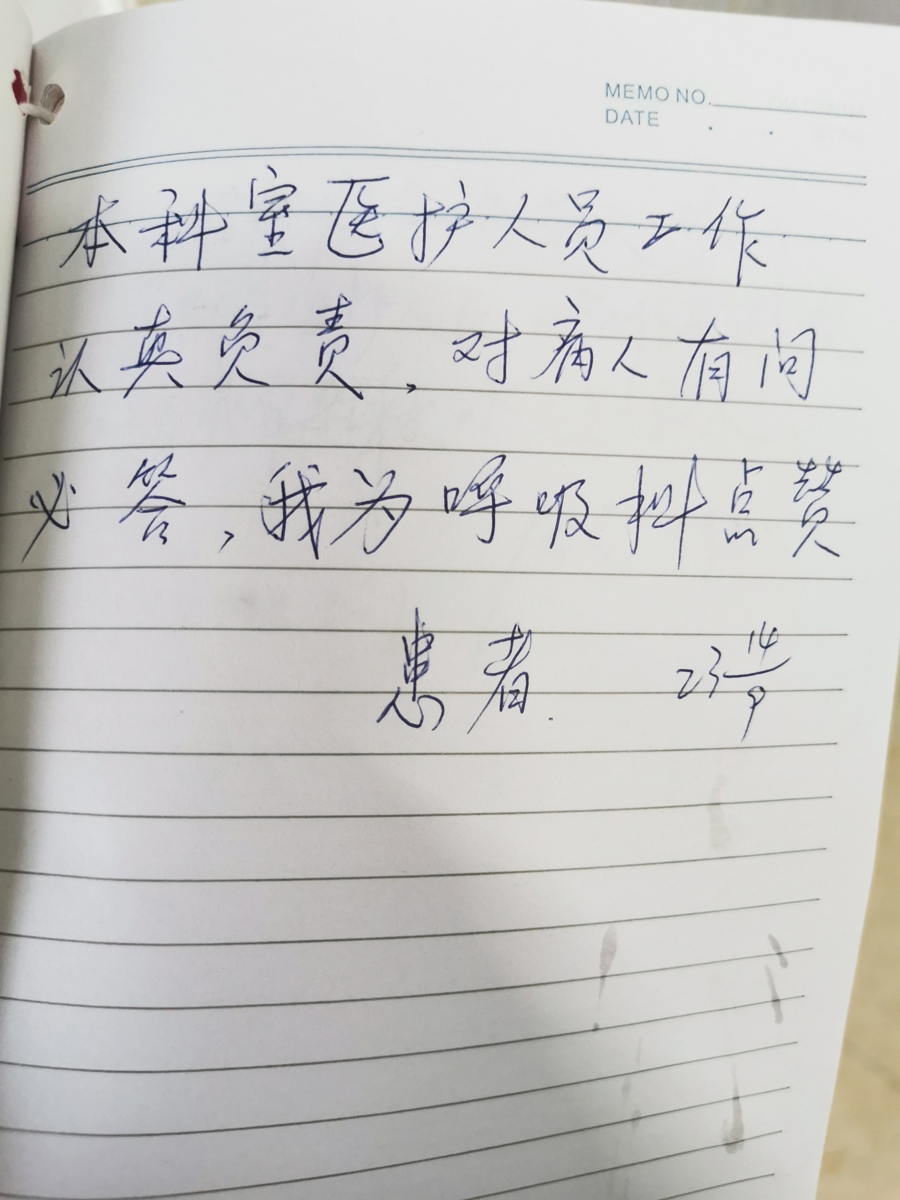 MEMO NO.
DATE . .
本科室医护人员工作
认真负责,对病人有问
必答,我为呼吸科点赞
患者. 23 14/9